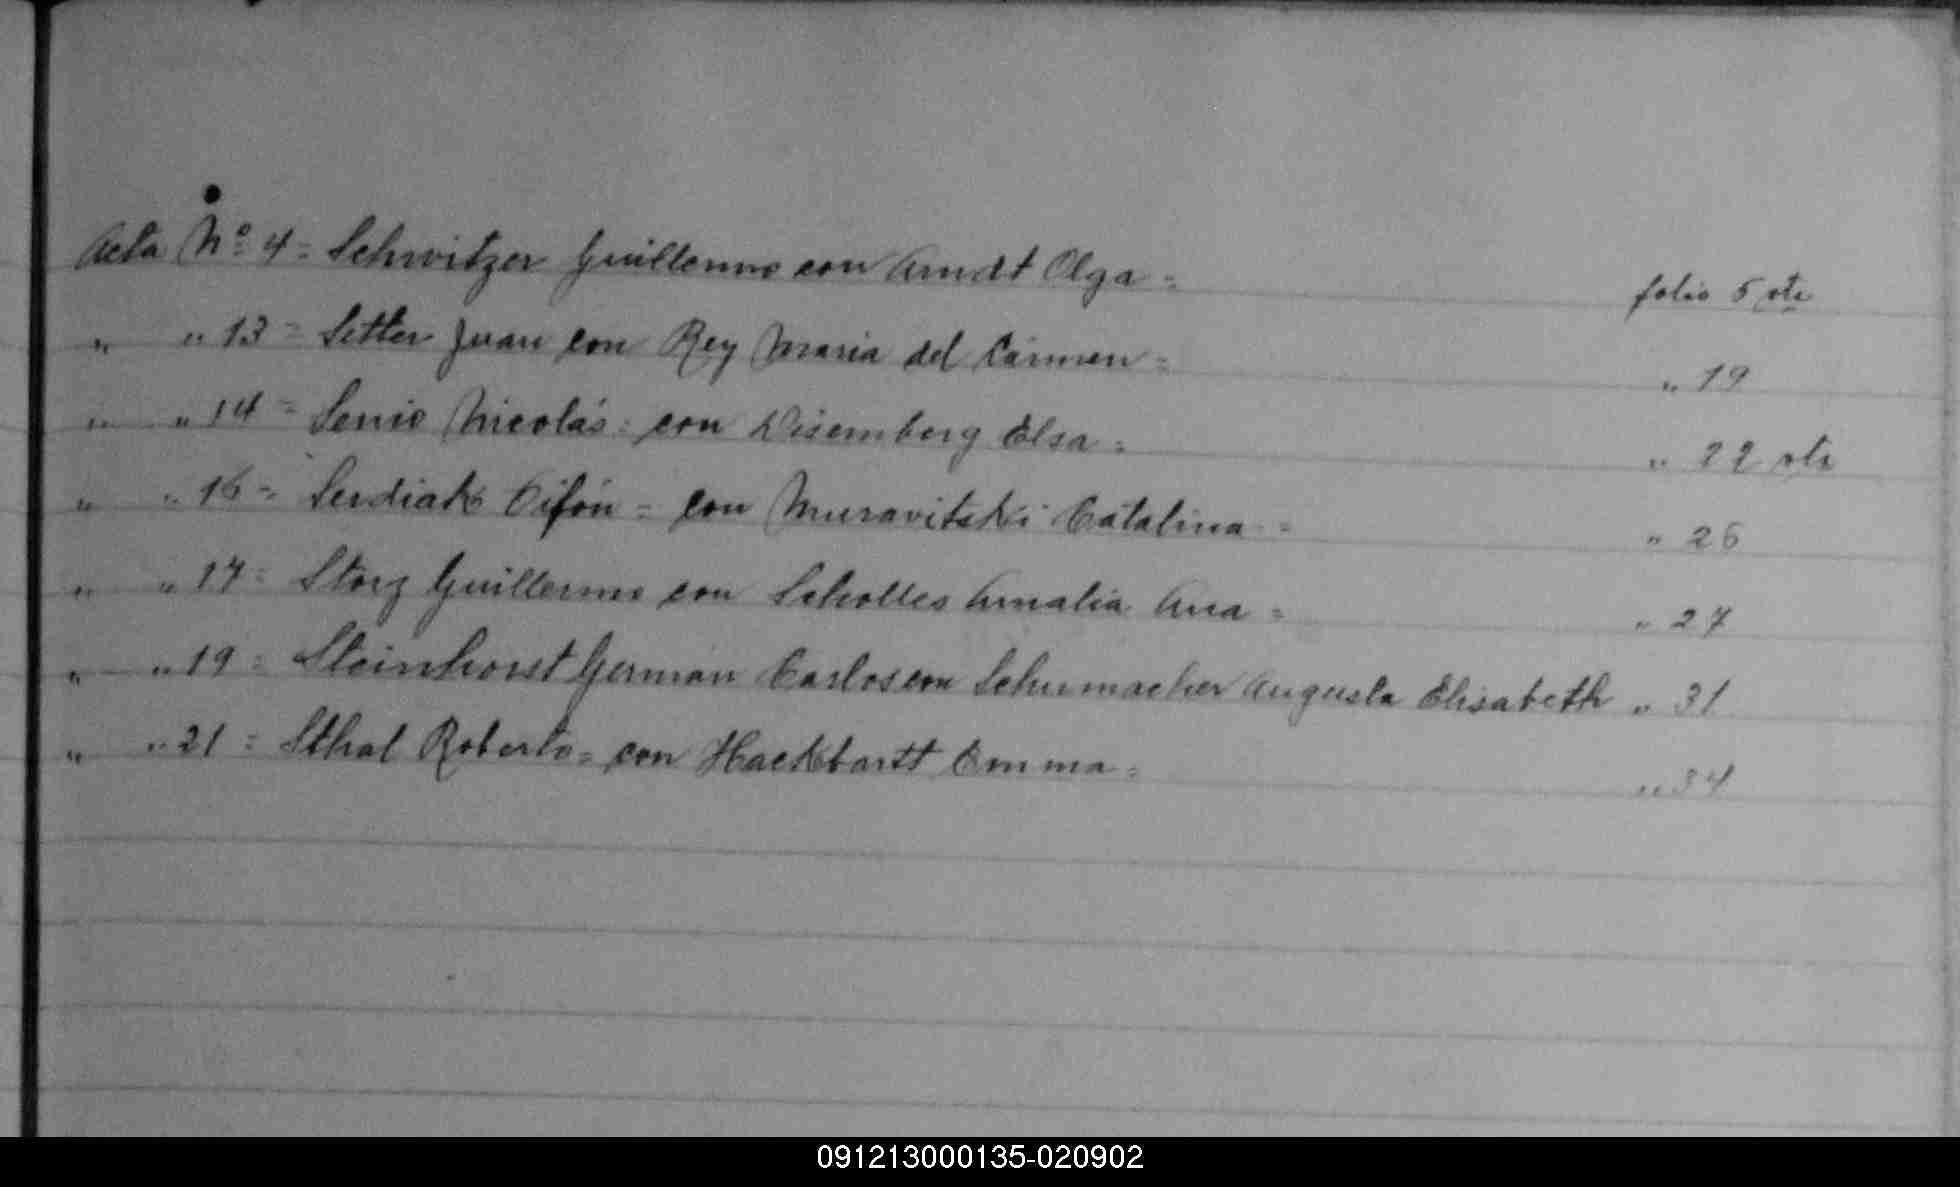 Acta Nº 4 = Schwitzer Guillermo con Arndt Olga = folio 5 vta
" " 13 = Setter Juan con Rey Maria del Carmen = " 19
" " 14 = Senio Nicolás = con Disemberg Elsa = " 22 vta
" " 16 = Serdiak = con Muravitski Catalina = " 25
" " 17 = Storz Guillermo con Scholles Amalia Ana = " 27
" " 19 = Steinhorst Germán Carlos con Schumacher Augusta Elisabeth " 31
" " 21 = Sthal Roberto = con Hackbartt Emma = " 34
091213000135-020902